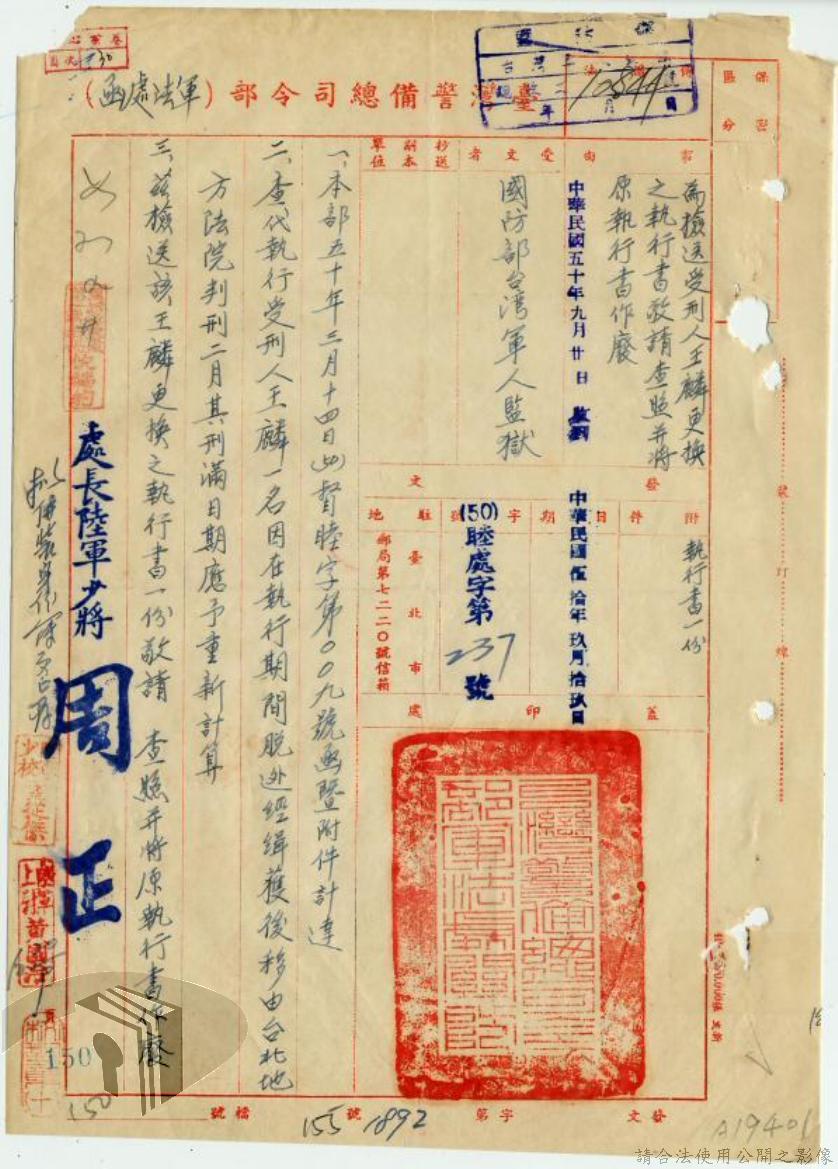 臺灣警備總司令部（軍法處函）
保密區分
事由
為檢送受刑人王麟更換
之執行書敬請查照并將
原執行書作廢
附件
執行書一份
受文者
國防部台湾軍人監獄
抄送副本單位
中華民國五十年九月廿日
發文
日期
中華民國伍拾年玖月拾玖日
字號
(50)睦處字第237號
駐地
臺北市
郵局第七二二〇號信箱
蓋印處
一、本部五十年三月十四日(50)督睦字第00九號函暨附件計達
二、查代執行受刑人王麟一名因在執行期間脫逃經緝獲後移由台北地
方法院判刑二月其刑滿日期應予重新計算
三、茲檢送該王麟更換之執行書一份敬請　查照并將原執行書作廢
處長陸軍少將周正
150
150
發文字第1892號
檔號
155
A19401
請合法使用公開之影像